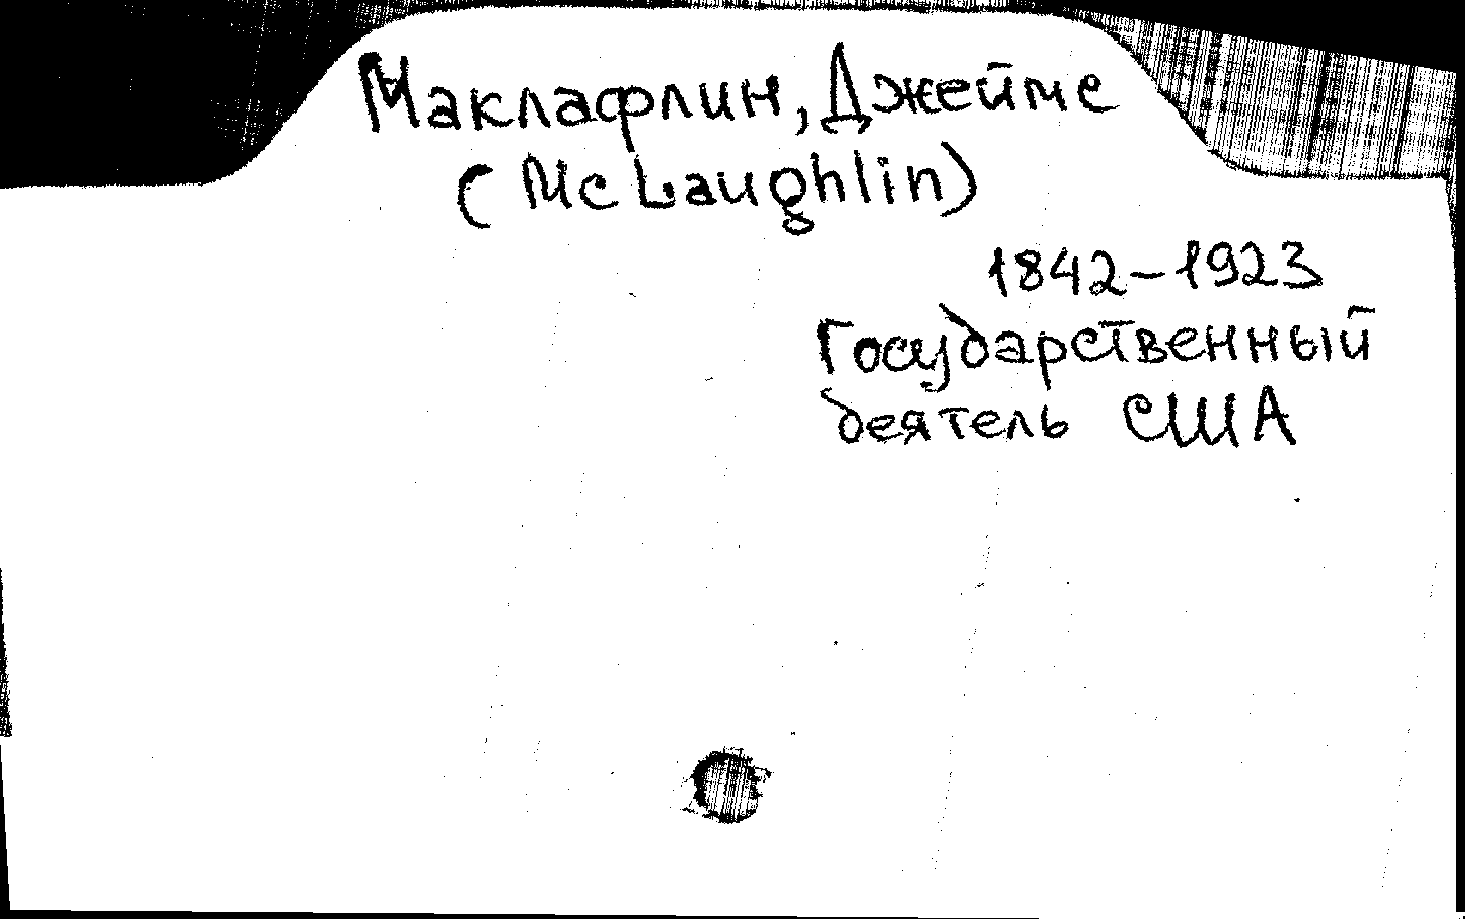 Маклафлин, Джеймс
(McLaughlin)
1842-1923
Государственный
деятель США